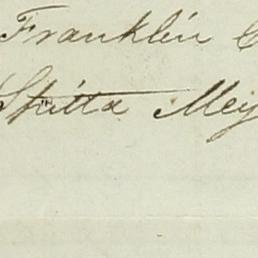 Franklin C
Spitta Mey